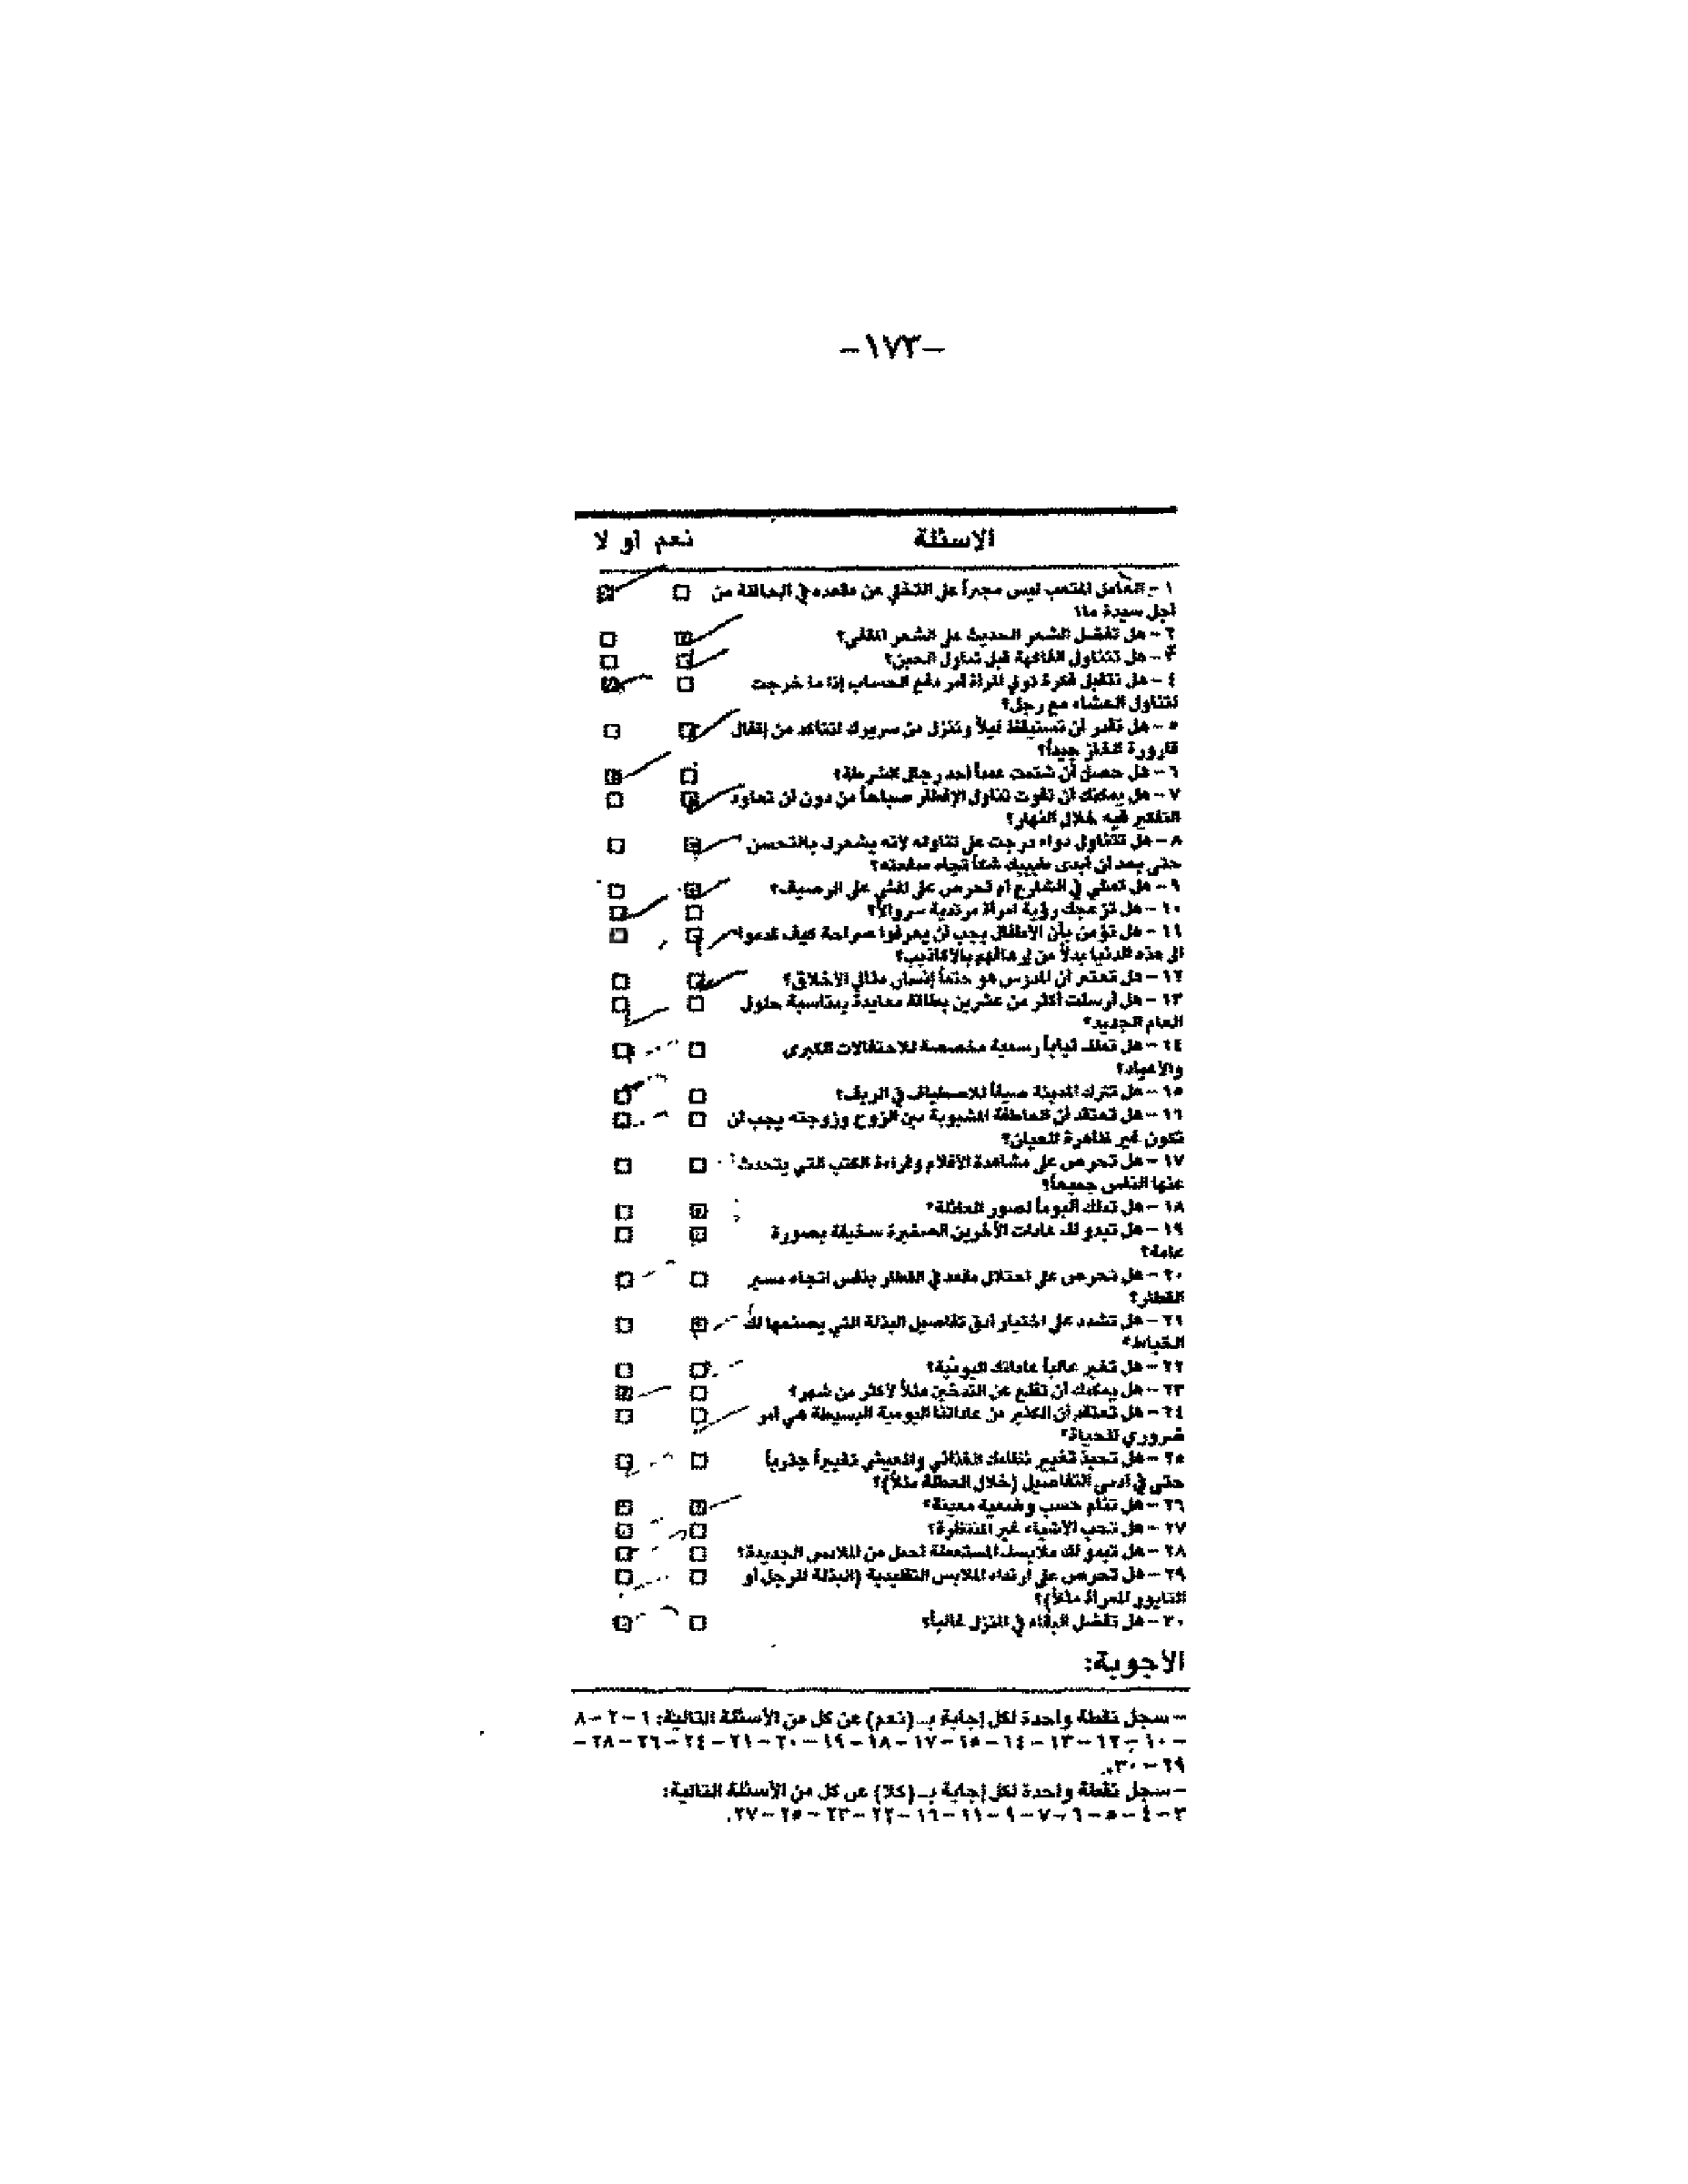 -١٧٣-
الاسئلة نعم او لا
١ - العامل المتعب ليس مجبراً على التخلي عن مقعده في الحافلة من
اجل سيدة ما؟
٢ - هل تفضل الشعر الحديث على الشعر المقفى؟
٣ - هل تتناول الفاكهة قبل تناول الجبن؟
٤ - هل تتقبل فكرة تولي المرأة امر دفع الحساب إذا ما خرجت
لتناول العشاء مع رجل؟
٥ - هل تقدر ان تستيقظ ليلاً وتنزل من سريرك لتتأكد من إقفال
قارورة الغاز جيداً؟
٦ - هل حصل أن شتمت عمداً أحد رجال الشرطة؟
٧ - هل يمكنك ان تفوت تناول الإفطار صباحاً من دون ان تعاود
التفكير فيه خلال النهار؟
٨ - هل تتناول دواء درجت على تناوله لأنه يشعرك بالتحسن
حتى بعد ان ابدى طبيبك شكاً تجاه منفعته؟
٩ - هل تمشي في الشارع ام تحرص على المشي على الرصيف؟
١٠ - هل تزعجك رؤية امرأة مرتدية سروالاً؟
١١ - هل تؤمن بأن الأطفال يجب ان يعرفوا صراحة كيف قدموا
الى هذه الدنيا بدلاً من إرهاقهم بالأكاذيب؟
١٢ - هل تعتبر ان المدرس هو حتماً إنسان مثالي الاخلاق؟
١٣ - هل أرسلت أكثر من عشرين بطاقة معايدة بمناسبة حلول
العام الجديد؟
١٤ - هل تملك ثياباً رسمية مخصصة للاحتفالات الكبرى
والأعياد؟
١٥ - هل تترك المدينة صيفاً للاصطياف في الريف؟
١٦ - هل تعتقد أن العاطفة المشبوبة بين الزوج وزوجته يجب ان
تكون غير ظاهرة للعيان؟
١٧ - هل تحرص على مشاهدة الأفلام وقراءة الكتب التي يتحدث
عنها الناس جميعاً؟
١٨ - هل تملك ألبوماً لصور العائلة؟
١٩ - هل تبدو لك عادات الآخرين الصغيرة سخيفة بصورة
عامة؟
٢٠ - هل تحرص على احتلال مقعد في القطار بنفس اتجاه مسير
القطار؟
٢١ - هل تشدد على اختيار أدق تفاصيل البذلة التي يصنعها لك
الخياط؟
٢٢ - هل تغير غالباً عاداتك اليومية؟
٢٣ - هل يمكنك أن تقلع عن التدخين مثلاً لأكثر من شهر؟
٢٤ - هل تعتقد أن الكثير من عاداتنا اليومية البسيطة هي أمر
ضروري للحياة؟
٢٥ - هل تحبذ تغيير نظامك الغذائي والمعيشي تغييراً جذرياً
حتى في أدنى التفاصيل (خلال العطلة مثلاً)؟
٢٦ - هل تنام حسب وضعية معينة؟
٢٧ - هل تحب الأشياء غير المنتظرة؟
٢٨ - هل تبدو لك ملابسك المستعملة اجمل من الملابس الجديدة؟
٢٩ - هل تحرص على ارتداء الملابس التقليدية (البذلة للرجل أو
التايور للمرأة مثلاً)؟
٣٠ - هل تفضل البقاء في المنزل غالباً؟
الأجوبة:
- سجل نقطة واحدة لكل إجابة بـ (نعم) عن كل من الأسئلة التالية: ١ - ٢ - ٨
- ١٠ - ١٢ - ١٣ - ١٤ - ١٥ - ١٧ - ١٨ - ١٩ - ٢٠ - ٢١ - ٢٤ - ٢٦ - ٢٨ -
٢٩ - ٣٠.
- سجل نقطة واحدة لكل إجابة بـ (كلا) عن كل من الأسئلة التالية:
٣ - ٤ - ٥ - ٦ - ٧ - ٩ - ١١ - ١٦ - ٢٢ - ٢٣ - ٢٥ - ٢٧.